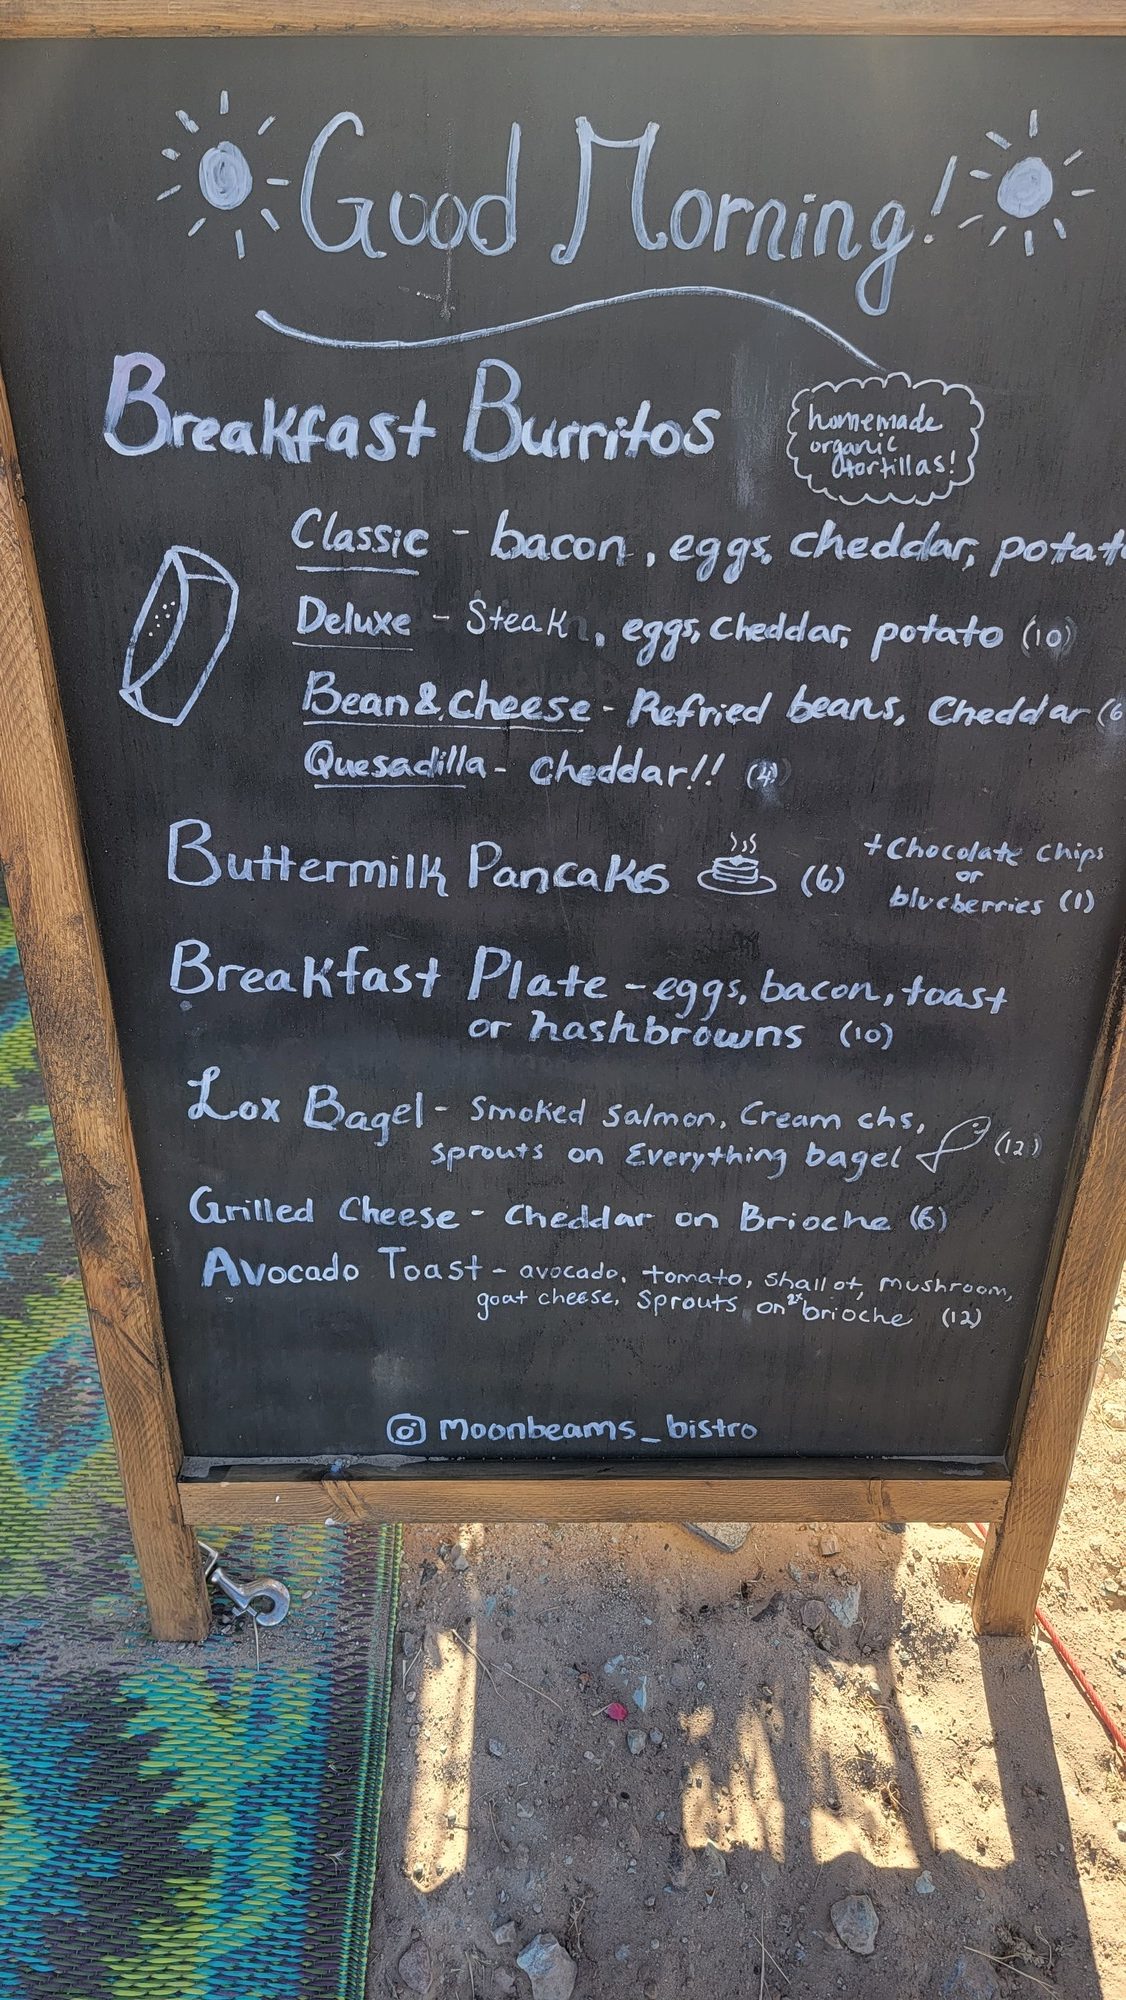 Good Morning!
Breakfast Burritos
homemade
organic
tortillas!
Classic - bacon, eggs, cheddar, potato
Deluxe - Steak, eggs, cheddar, potato (10)
Bean & cheese - Refried beans, cheddar (6
Quesadilla - cheddar!! (4)
Buttermilk Pancakes (6)
+ Chocolate chips
or
blueberries (1)
Breakfast Plate - eggs, bacon, toast
or hashbrowns (10)
Lox Bagel - Smoked salmon, cream chs,
sprouts on Everything bagel (12)
Grilled Cheese - Cheddar on Brioche (6)
Avocado Toast - avocado, tomato, shallot, mushroom,
goat cheese, Sprouts on 2x brioche (12)
Moonbeams_bistro